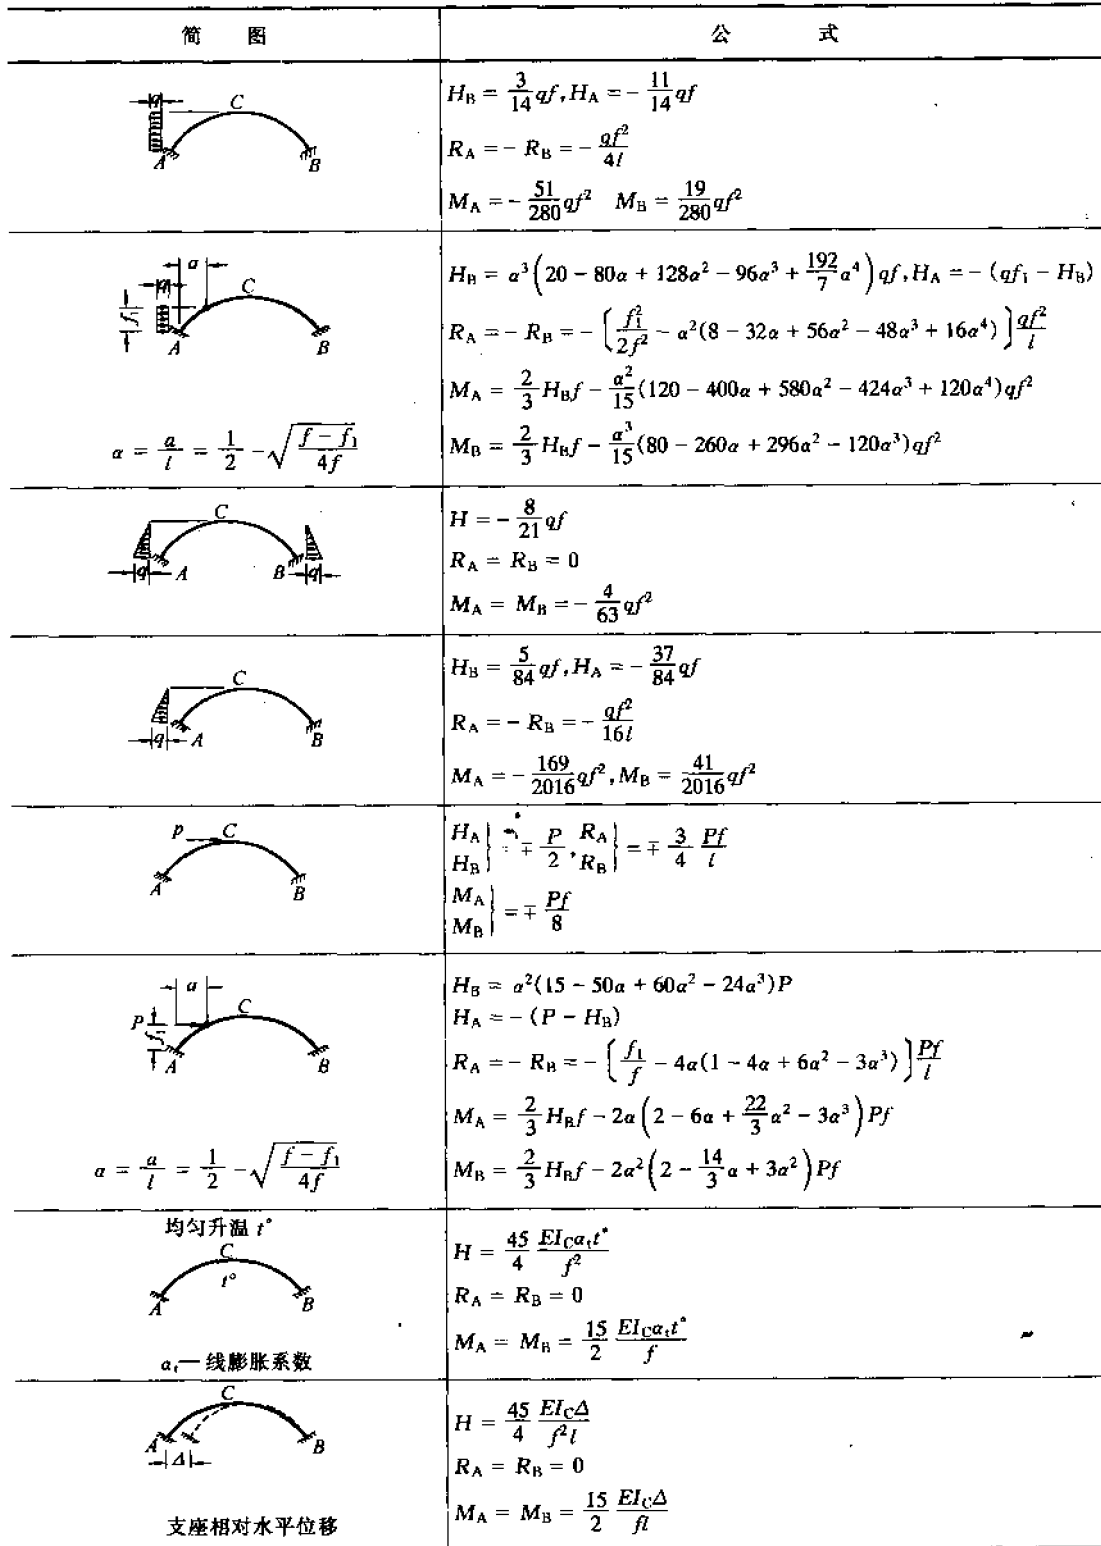 简 图 公 式
q
C
A
B
H_B = 3/14 qf, H_A = - 11/14 qf
R_A = - R_B = - qf²/4l
M_A = - 51/280 qf² M_B = 19/280 qf²
a
q
C
f₁
A
B
α = a/l = 1/2 - √((f - f₁)/4f)
H_B = α³(20 - 80α + 128α² - 96α³ + 192/7 α⁴)qf, H_A = - (qf₁ - H_B)
R_A = - R_B = - [f₁²/2f² - α²(8 - 32α + 56α² - 48α³ + 16α⁴)] qf²/l
M_A = 2/3 H_B f - α²/15 (120 - 400α + 580α² - 424α³ + 120α⁴)qf²
M_B = 2/3 H_B f - α³/15 (80 - 260α + 296α² - 120α³)qf²
C
q A B q
H = - 8/21 qf
R_A = R_B = 0
M_A = M_B = - 4/63 qf²
C
q A B
H_B = 5/84 qf, H_A = - 37/84 qf
R_A = - R_B = - qf²/16l
M_A = - 169/2016 qf², M_B = 41/2016 qf²
p C
A B
H_A H_B} = ∓ P/2, R_A R_B} = ∓ 3/4 Pf/l
M_A M_B} = ∓ Pf/8
a
C
P
f₁
A
B
α = a/l = 1/2 - √((f - f₁)/4f)
H_B = α²(15 - 50α + 60α² - 24α³)P
H_A = - (P - H_B)
R_A = - R_B = - [f₁/f - 4α(1 - 4α + 6α² - 3α³)] Pf/l
M_A = 2/3 H_B f - 2α(2 - 6α + 22/3 α² - 3α³)Pf
M_B = 2/3 H_B f - 2α²(2 - 14/3 α + 3α²)Pf
均匀升温 t°
C
t°
A B
α_t— 线膨胀系数
H = 45/4 EI_C α_t t°/f²
R_A = R_B = 0
M_A = M_B = 15/2 EI_C α_t t°/f
C
A B
Δ
支座相对水平位移
H = 45/4 EI_C Δ/f²l
R_A = R_B = 0
M_A = M_B = 15/2 EI_C Δ/fl